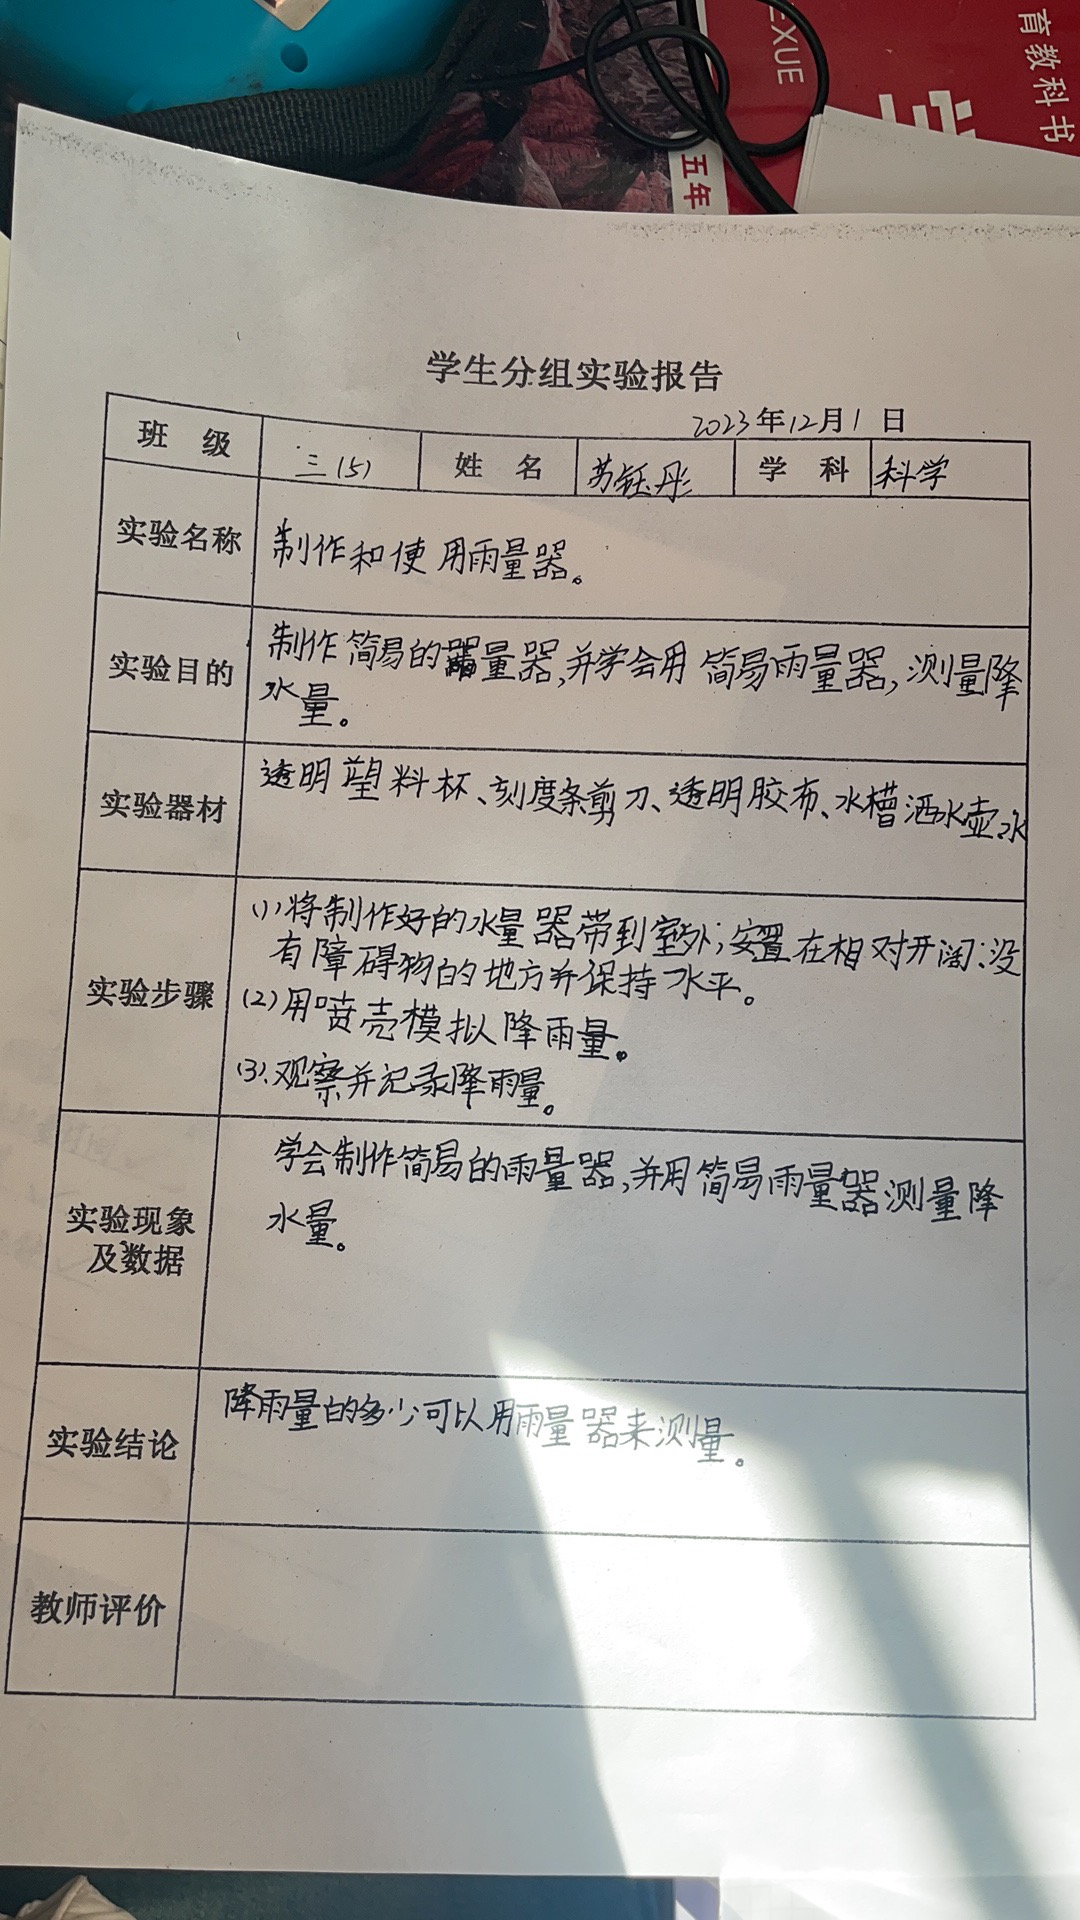 EXUE
育教科书
五年
学生分组实验报告
2023年12月1日
班 级 三(5) 姓 名 苏钰彤 学 科 科学
实验名称 制作和使用雨量器。
实验目的 制作简易的量器,并学会用简易雨量器,测量降
水量。
实验器材 透明塑料杯、刻度条剪刀、透明胶布、水槽洒水壶水
实验步骤
(1)将制作好的水量器带到室外;安置在相对开阔;没
有障碍物的地方并保持水平。
(2)用喷壳模拟降雨量。
(3).观察并记录降雨量。
实验现象
及数据
学会制作简易的雨量器,并用简易雨量器测量降
水量。
实验结论 降雨量的多少可以用雨量器来测量。
教师评价